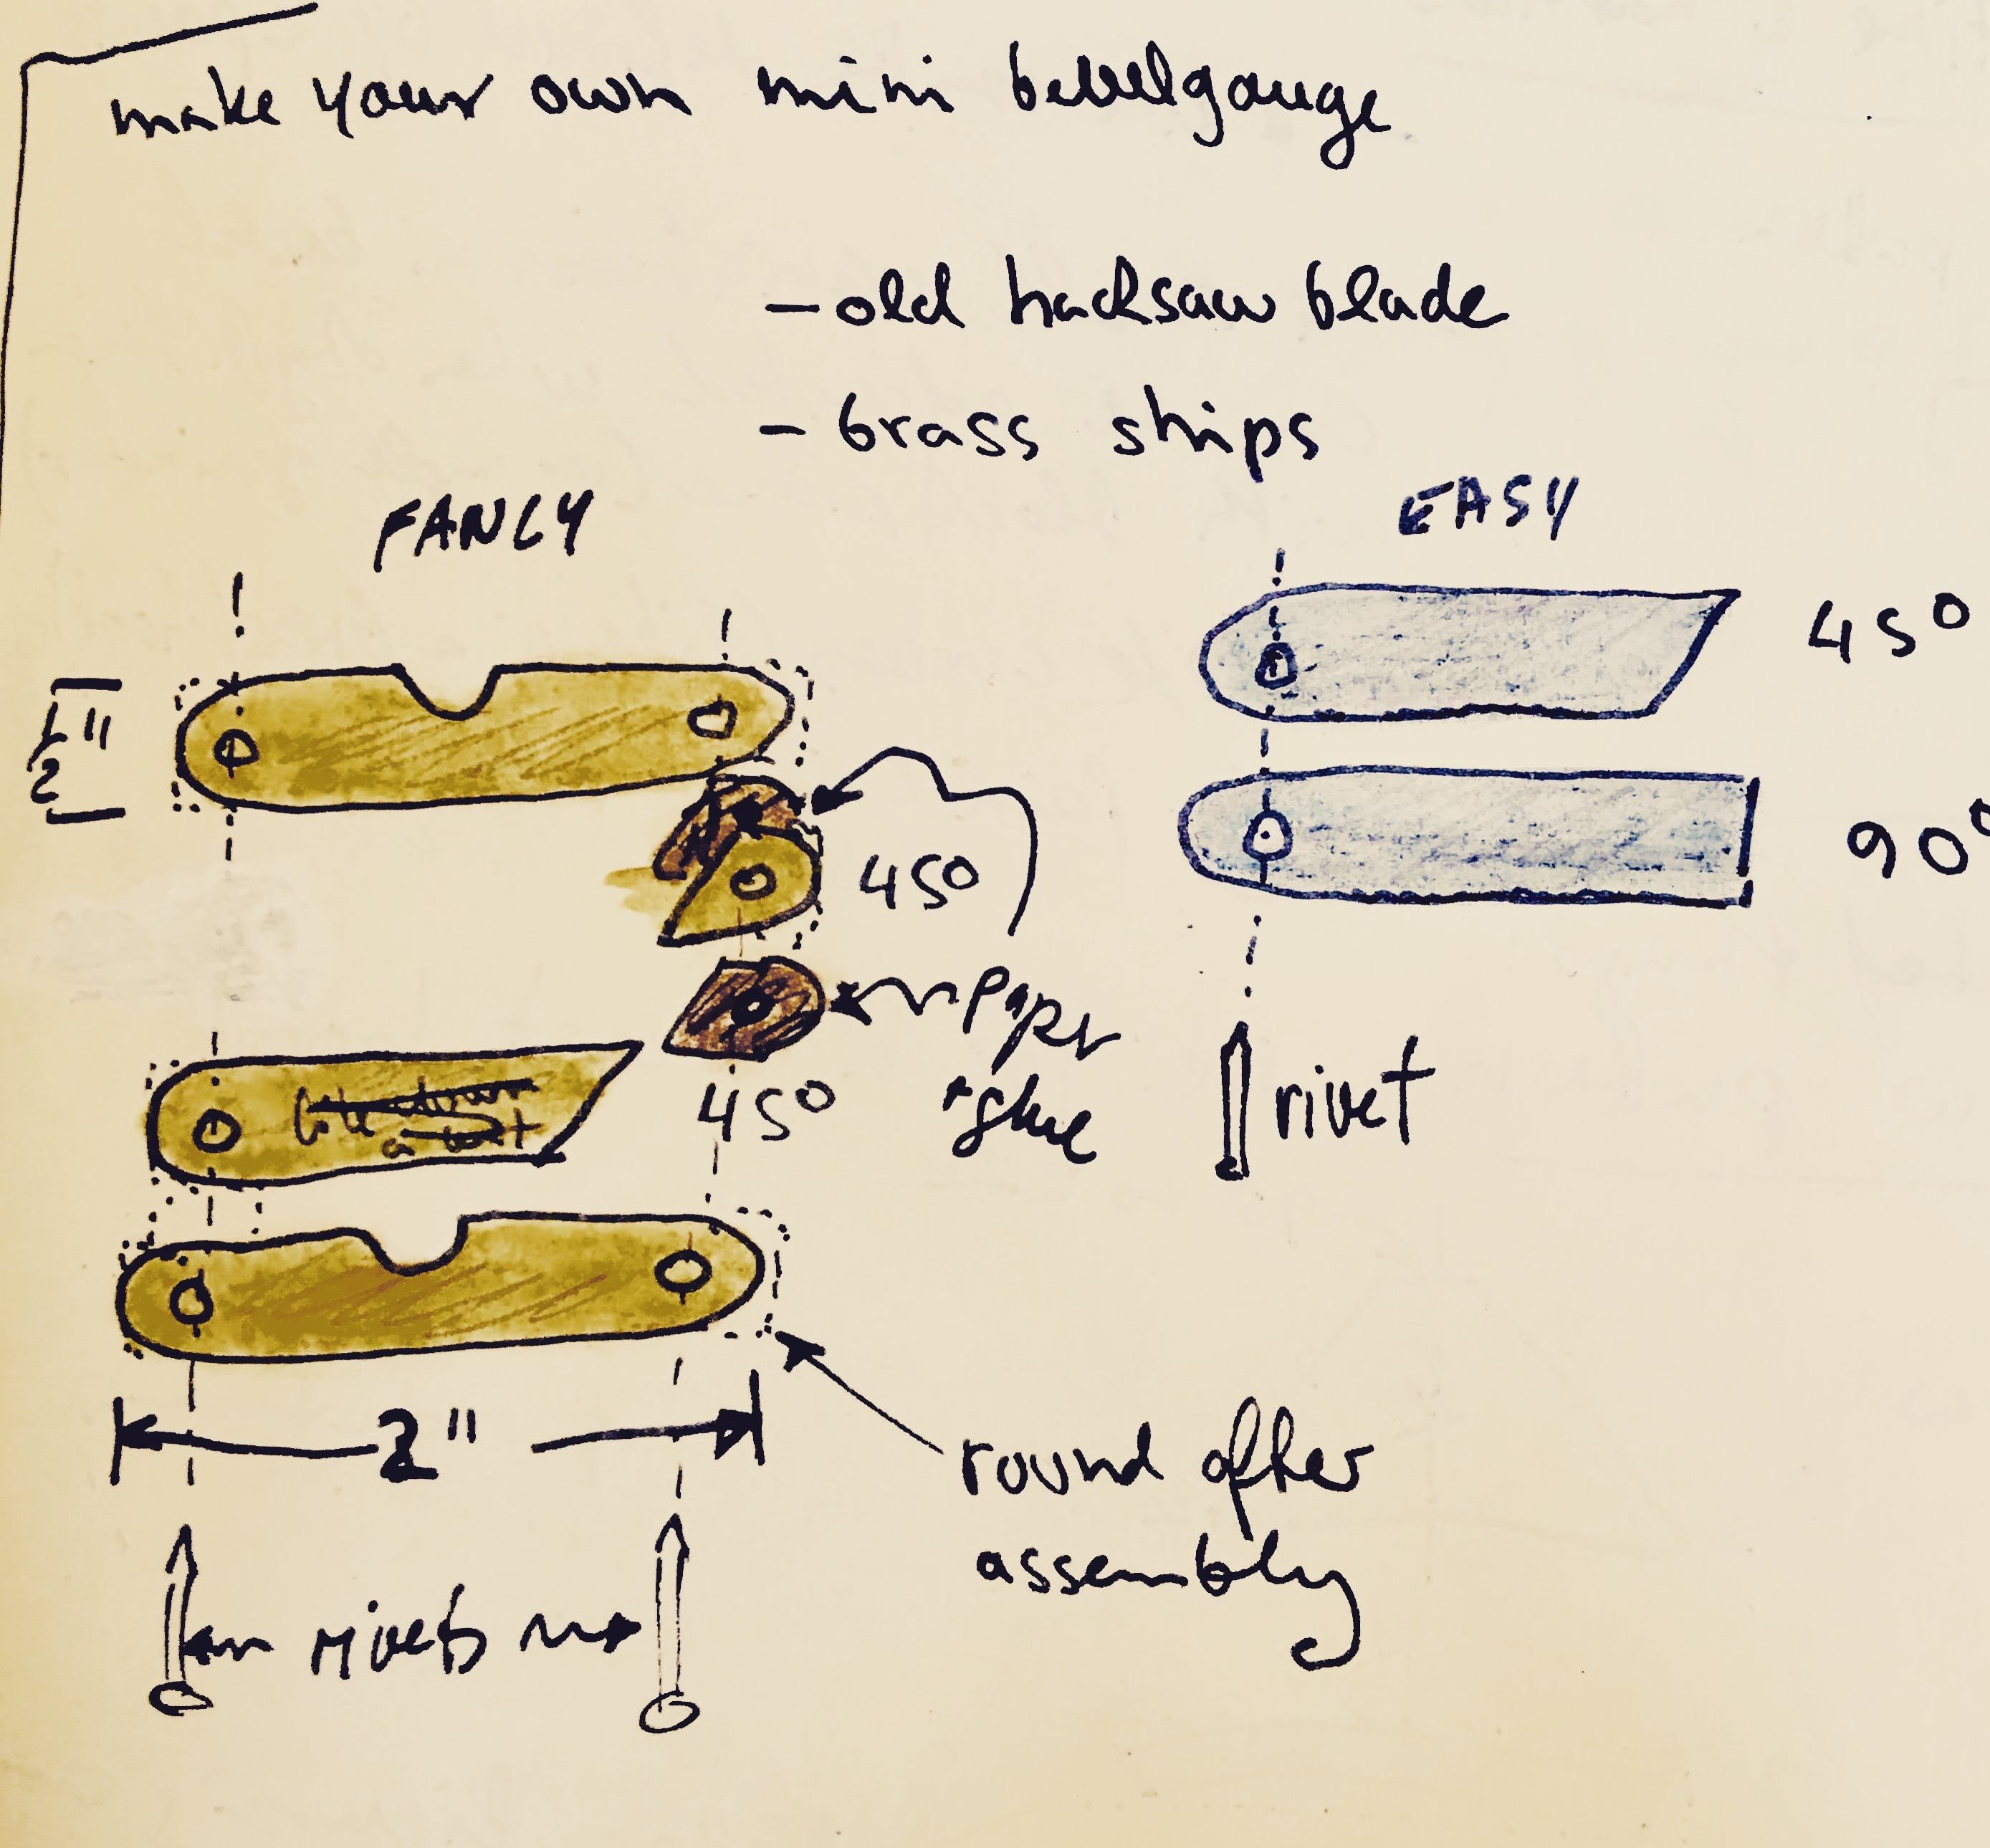 make your own mini bevelgauge
- old hacksaw blade
- brass strips
FANCY
EASY
45°
1/2"
90°
45°
paper
+ glue
45°
rivet
2"
round after
assembly
rivets